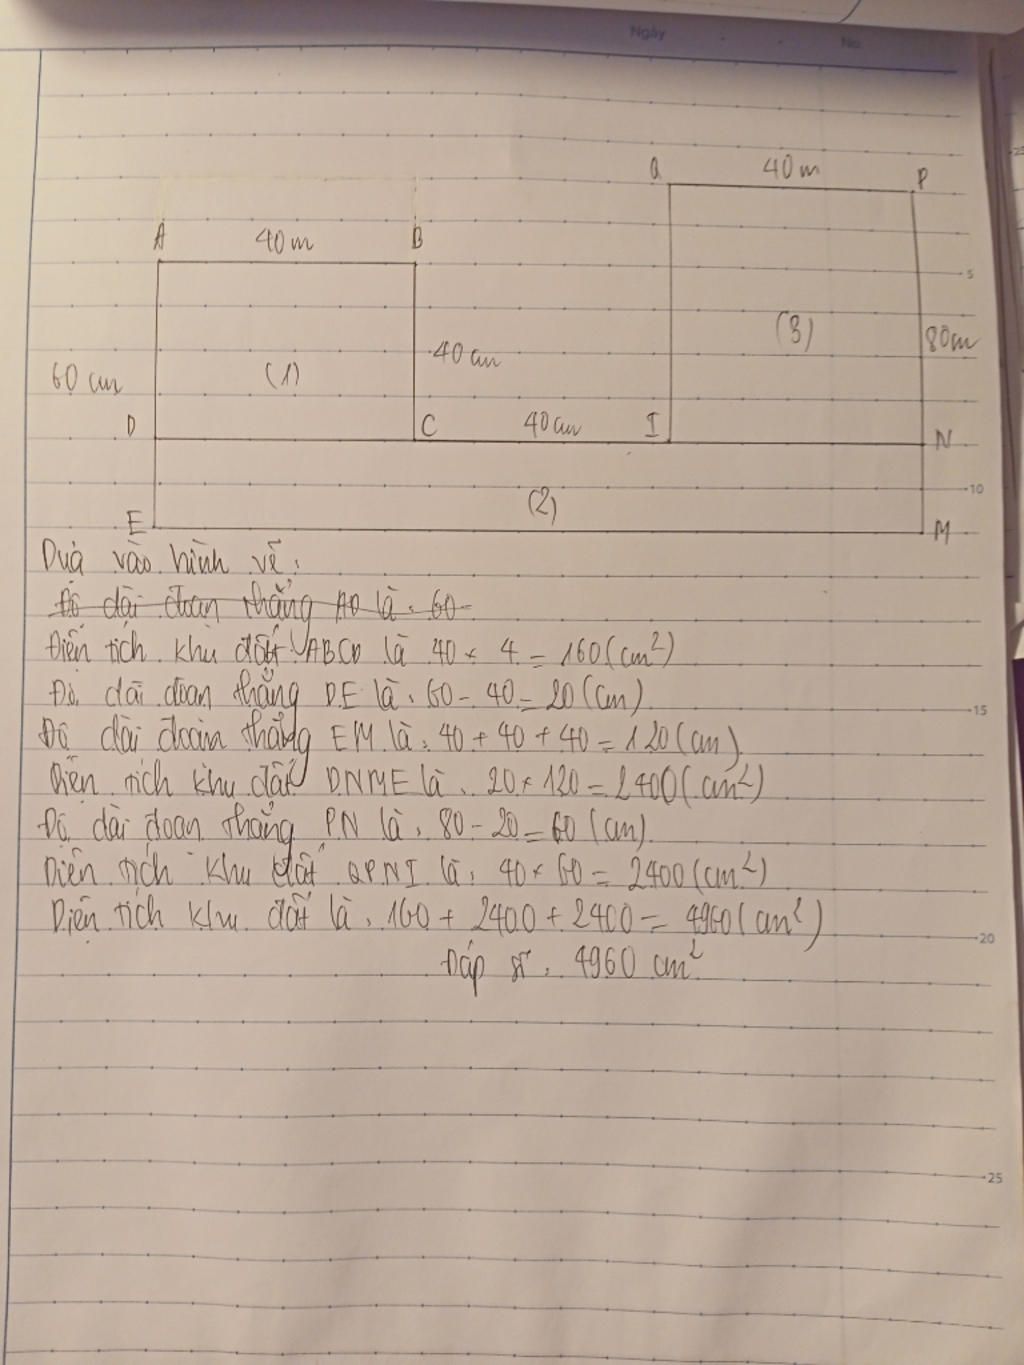 Ngày
No.
Q 40 m P
A 40 m B
5
(3)
80m
40 cm
60 cm
(1)
D C 40 cm I N
10
(2)
E M
Dựa vào hình vẽ:
Độ dài đoạn thẳng AD là: 60
Diện tích khu đất ABCD là 40 × 4 = 160 (cm²)
Độ dài đoạn thẳng DE là: 60 - 40 = 20 (cm)
15
Độ dài đoạn thẳng EM là: 40 + 40 + 40 = 120 (cm)
Diện tích khu đất DNME là: 20 × 120 = 2400 (cm²)
Độ dài đoạn thẳng PN là: 80 - 20 = 60 (cm)
Diện tích khu đất QPNI là: 40 × 60 = 2400 (cm²)
Diện tích khu đất là: 160 + 2400 + 2400 = 4960 (cm²)
20
Đáp số: 4960 cm²
25